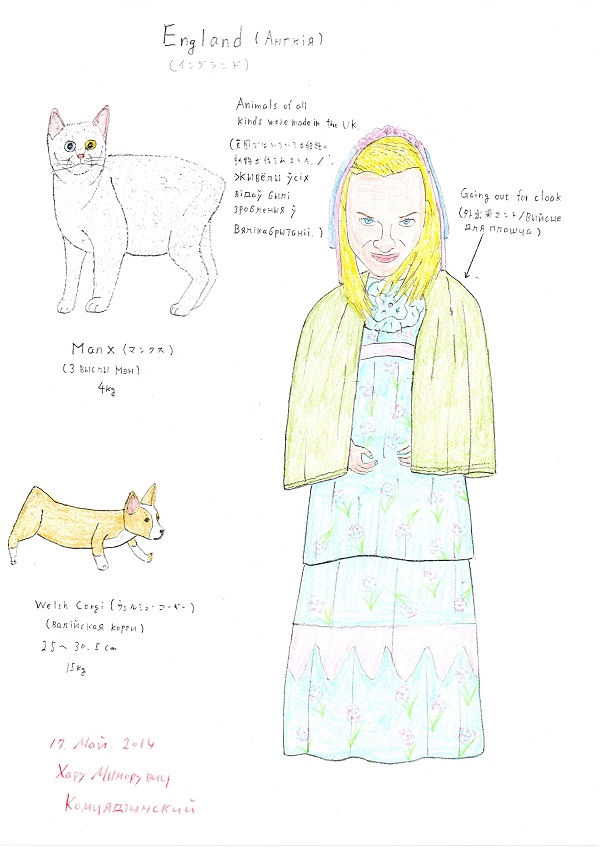 England (Англія)
(イングランド)
Animals of all
kinds were made in the UK.
(英国ではいろいろな種類の
動物が作られました。/
Жывёлы ўсіх
відаў былі
зробленыя ў
Вялікабрытаніі.)
Going out for cloak
(外出用マント/Выйсце
для плошча)
Manx (マンクス)
(З выспы Мэн)
4kg
Welsh Corgi (ウェルシュ・コーギー)
(Валійская коргі)
25~30.5cm
15kg
17. Май. 2014
Хару Минорувиц
Комиядзинский